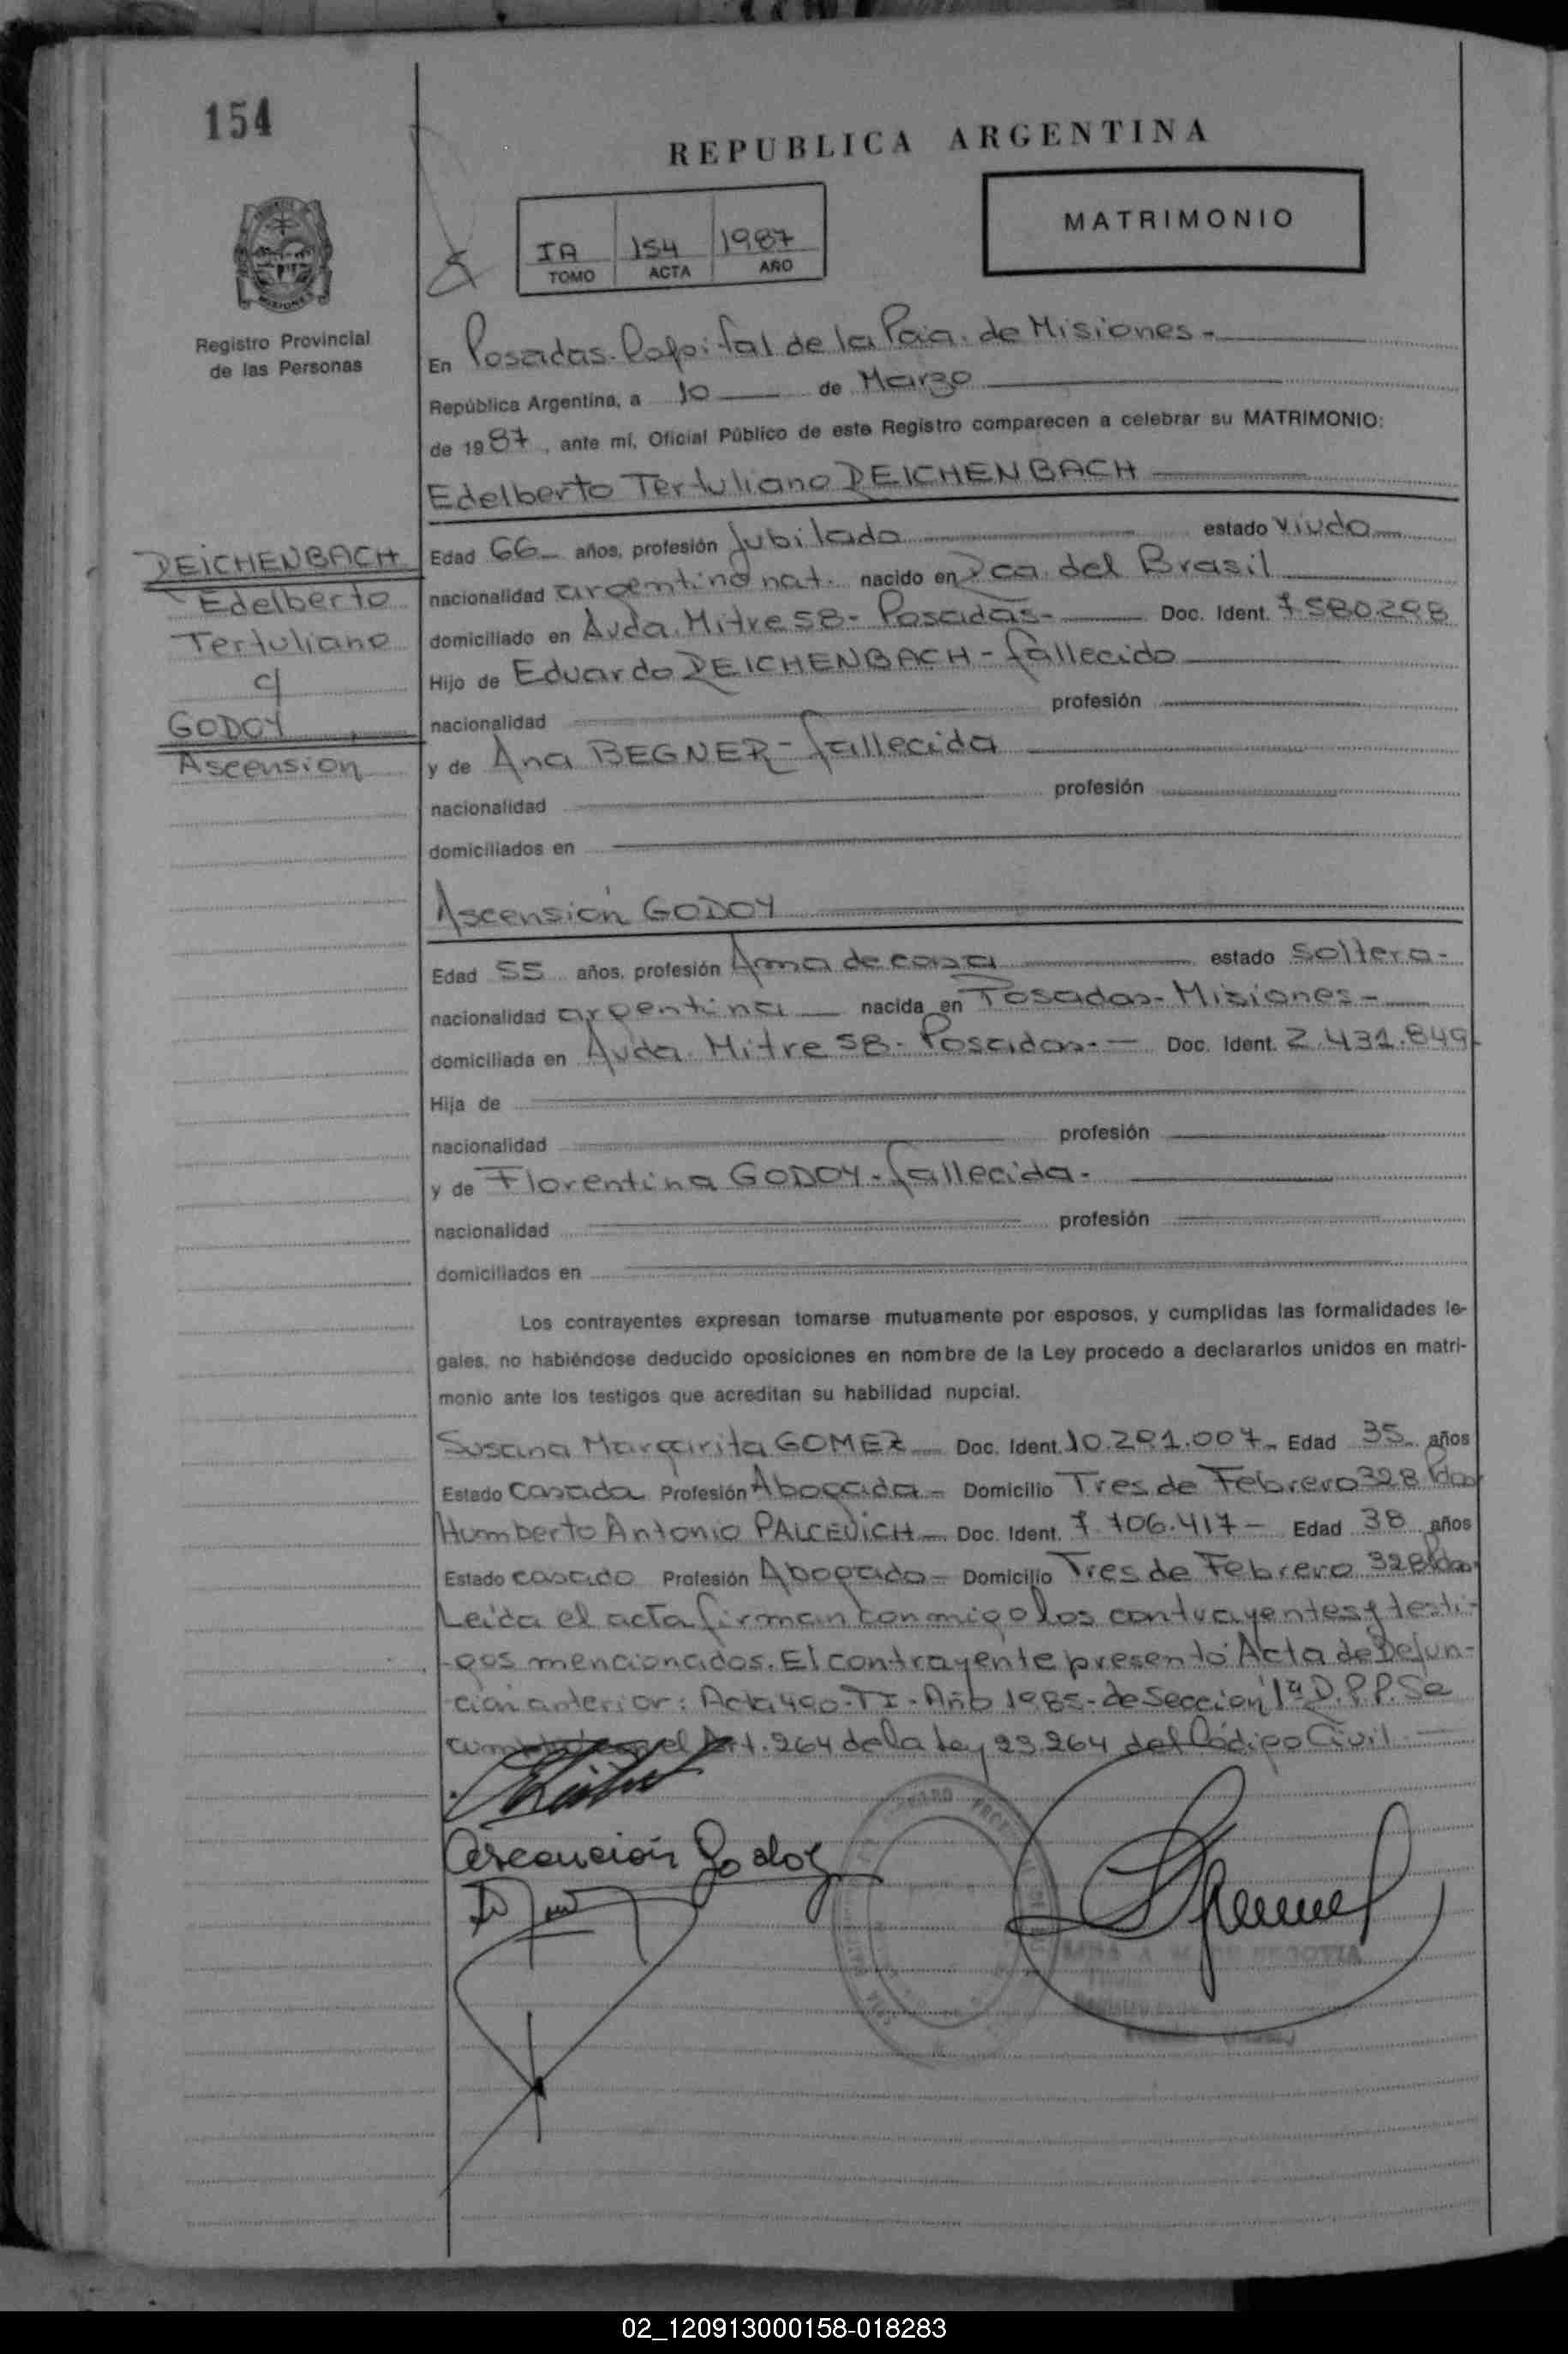 154
REPUBLICA ARGENTINA
MATRIMONIO
IA 154 1987
TOMO ACTA AÑO
MISIONES
Registro Provincial
de las Personas
En Posadas. Capital de la Pcia. de Misiones -
República Argentina, a 10 de Marzo
de 1987, ante mí, Oficial Público de este Registro comparecen a celebrar su MATRIMONIO:
Edelberto Tertuliano DEICHENBACH
DEICHENBACH
Edelberto
Tertuliano
c/
GODOY
Ascension
Edad 66 años, profesión Jubilado estado viudo
nacionalidad argentino nat. nacido en Rca. del Brasil
domiciliado en Avda. Mitre 58 - Posadas - Doc. Ident. 7.580.298
Hijo de Eduardo DEICHENBACH - fallecido
nacionalidad profesión
y de Ana BEGNER - fallecida
nacionalidad profesión
domiciliados en
Ascensión GODOY
Edad 55 años, profesión Ama de casa estado soltera -
nacionalidad argentina nacida en Posadas - Misiones -
domiciliada en Avda. Mitre 58 - Posadas - Doc. Ident. 2.431.849
Hija de
nacionalidad profesión
y de Florentina GODOY - fallecida -
nacionalidad profesión
domiciliados en
Los contrayentes expresan tomarse mutuamente por esposos, y cumplidas las formalidades le-
gales, no habiéndose deducido oposiciones en nombre de la Ley procedo a declararlos unidos en matri-
monio ante los testigos que acreditan su habilidad nupcial.
Susana Margarita GOMEZ Doc. Ident. 10.291.007 - Edad 35 años
Estado casada Profesión Abogada - Domicilio Tres de Febrero 328 Pdas
Humberto Antonio PALCEVICH - Doc. Ident. 7.706.417 - Edad 38 años
Estado casado Profesión Abogado - Domicilio Tres de Febrero 328 Pdas
Leída el acta firman conmigo los contrayentes y testi-
gos mencionados. El contrayente presentó Acta de Defun-
ción anterior: Acta 490 - TI - Año 1985 - de Sección 1ª D.P.P. Se
el Art. 264 de la Ley 23.264 del Código Civil -
Ascención Godoy
SEGOVIA
02_120913000158-018283